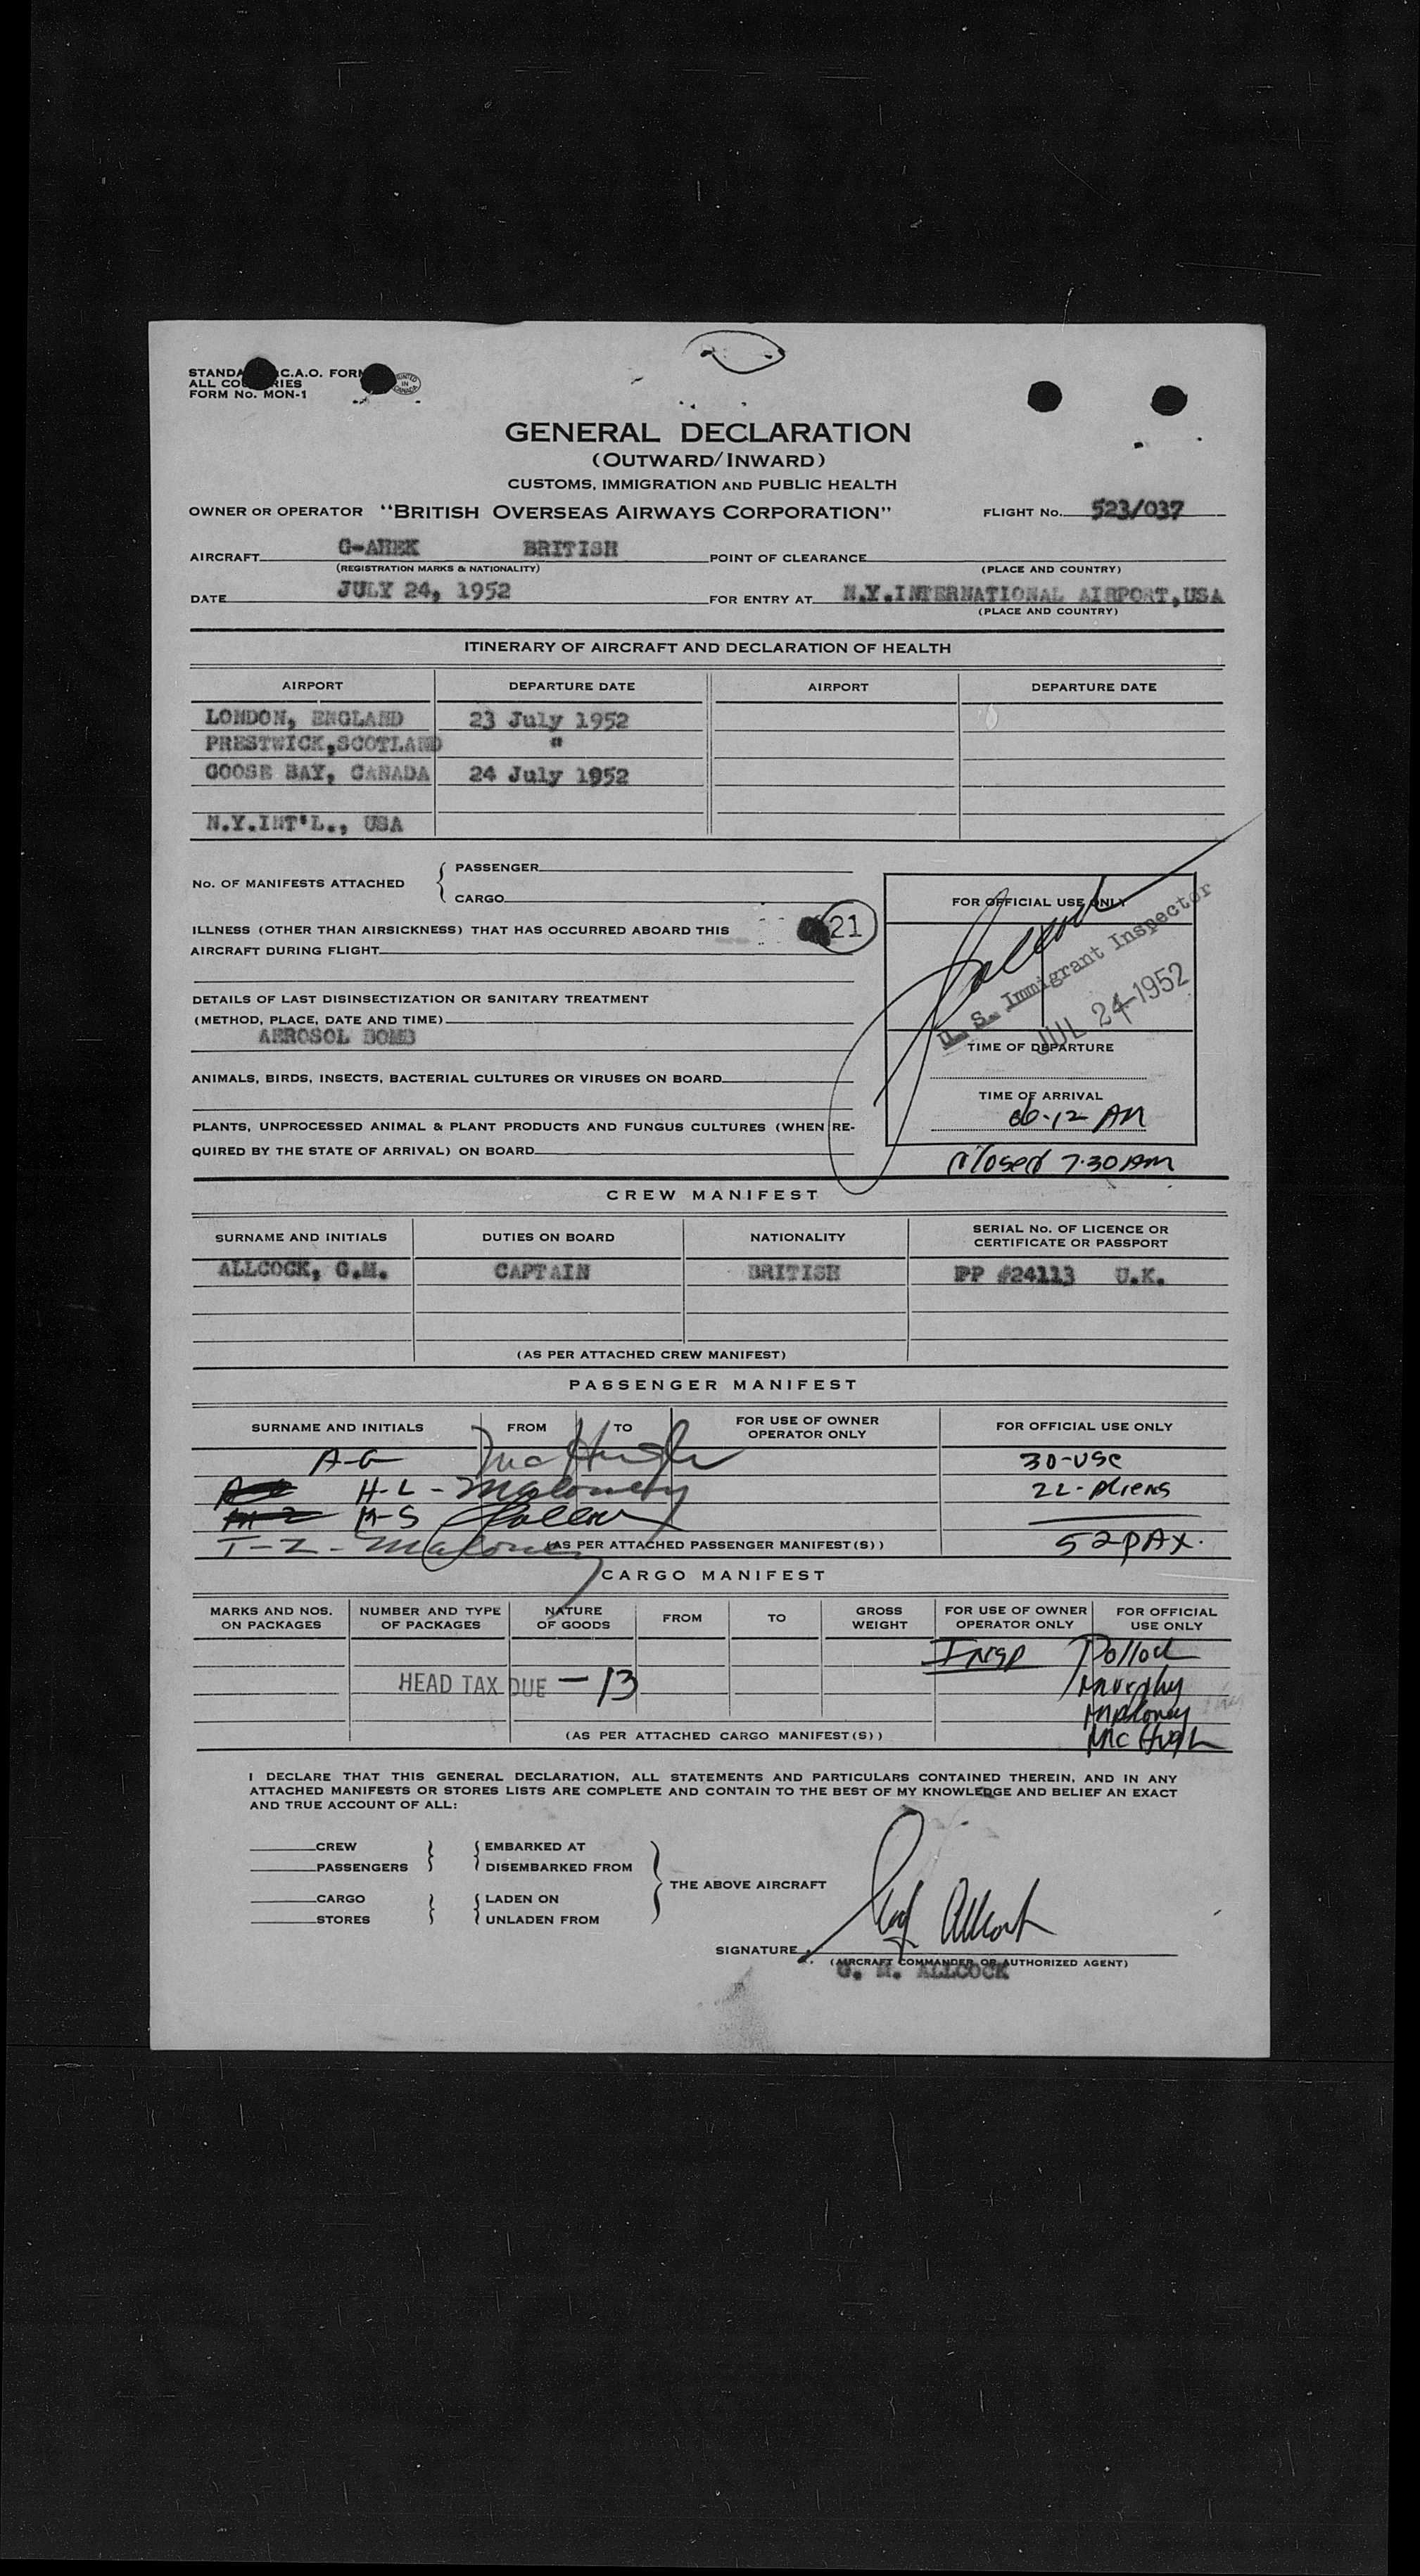 STANDA C.A.O. FORM
ALL COU RIES
FORM No. MON-1
PRINTED IN CANADA
GENERAL DECLARATION
(OUTWARD/INWARD)
CUSTOMS, IMMIGRATION AND PUBLIC HEALTH
OWNER OR OPERATOR "BRITISH OVERSEAS AIRWAYS CORPORATION" FLIGHT No. 523/037
AIRCRAFT G-AHEK BRITISH POINT OF CLEARANCE
(REGISTRATION MARKS & NATIONALITY) (PLACE AND COUNTRY)
DATE JULY 24, 1952 FOR ENTRY AT N.Y.INTERNATIONAL AIRPORT,USA
(PLACE AND COUNTRY)
ITINERARY OF AIRCRAFT AND DECLARATION OF HEALTH
AIRPORT DEPARTURE DATE AIRPORT DEPARTURE DATE
LONDON, ENGLAND 23 July 1952
PRESTWICK,SCOTLAND "
GOOSE BAY, CANADA 24 July 1952
N.Y.INT'L., USA
No. OF MANIFESTS ATTACHED { PASSENGER
CARGO
21
ILLNESS (OTHER THAN AIRSICKNESS) THAT HAS OCCURRED ABOARD THIS
AIRCRAFT DURING FLIGHT
DETAILS OF LAST DISINSECTIZATION OR SANITARY TREATMENT
(METHOD, PLACE, DATE AND TIME)
AEROSOL BOMB
ANIMALS, BIRDS, INSECTS, BACTERIAL CULTURES OR VIRUSES ON BOARD
PLANTS, UNPROCESSED ANIMAL & PLANT PRODUCTS AND FUNGUS CULTURES (WHEN RE-
QUIRED BY THE STATE OF ARRIVAL) ON BOARD
FOR OFFICIAL USE ONLY
U. S. Immigrant Inspector
JUL 24 1952
TIME OF DEPARTURE
TIME OF ARRIVAL
06.12 AM
Closed 7.30 AM
CREW MANIFEST
SURNAME AND INITIALS DUTIES ON BOARD NATIONALITY SERIAL No. OF LICENCE OR
CERTIFICATE OR PASSPORT
ALLCOCK, G.M. CAPTAIN BRITISH PP #24113 U.K.
(AS PER ATTACHED CREW MANIFEST)
PASSENGER MANIFEST
SURNAME AND INITIALS FROM TO FOR USE OF OWNER
OPERATOR ONLY FOR OFFICIAL USE ONLY
A-G McHugh 30-USC
H-L - Maloney 22-Aliens
M-S Pollock
T-Z - Maloney (AS PER ATTACHED PASSENGER MANIFEST(S)) 52 PAX.
CARGO MANIFEST
MARKS AND NOS.
ON PACKAGES NUMBER AND TYPE
OF PACKAGES NATURE
OF GOODS FROM TO GROSS
WEIGHT FOR USE OF OWNER
OPERATOR ONLY FOR OFFICIAL
USE ONLY
Insp Pollock
HEAD TAX DUE - 13 Murphy
Maloney
(AS PER ATTACHED CARGO MANIFEST(S)) McHugh
I DECLARE THAT THIS GENERAL DECLARATION, ALL STATEMENTS AND PARTICULARS CONTAINED THEREIN, AND IN ANY
ATTACHED MANIFESTS OR STORES LISTS ARE COMPLETE AND CONTAIN TO THE BEST OF MY KNOWLEDGE AND BELIEF AN EXACT
AND TRUE ACCOUNT OF ALL:
CREW } { EMBARKED AT
PASSENGERS } { DISEMBARKED FROM
THE ABOVE AIRCRAFT
CARGO } { LADEN ON
STORES } { UNLADEN FROM
SIGNATURE
(AIRCRAFT COMMANDER OR AUTHORIZED AGENT)
G. M. ALLCOCK